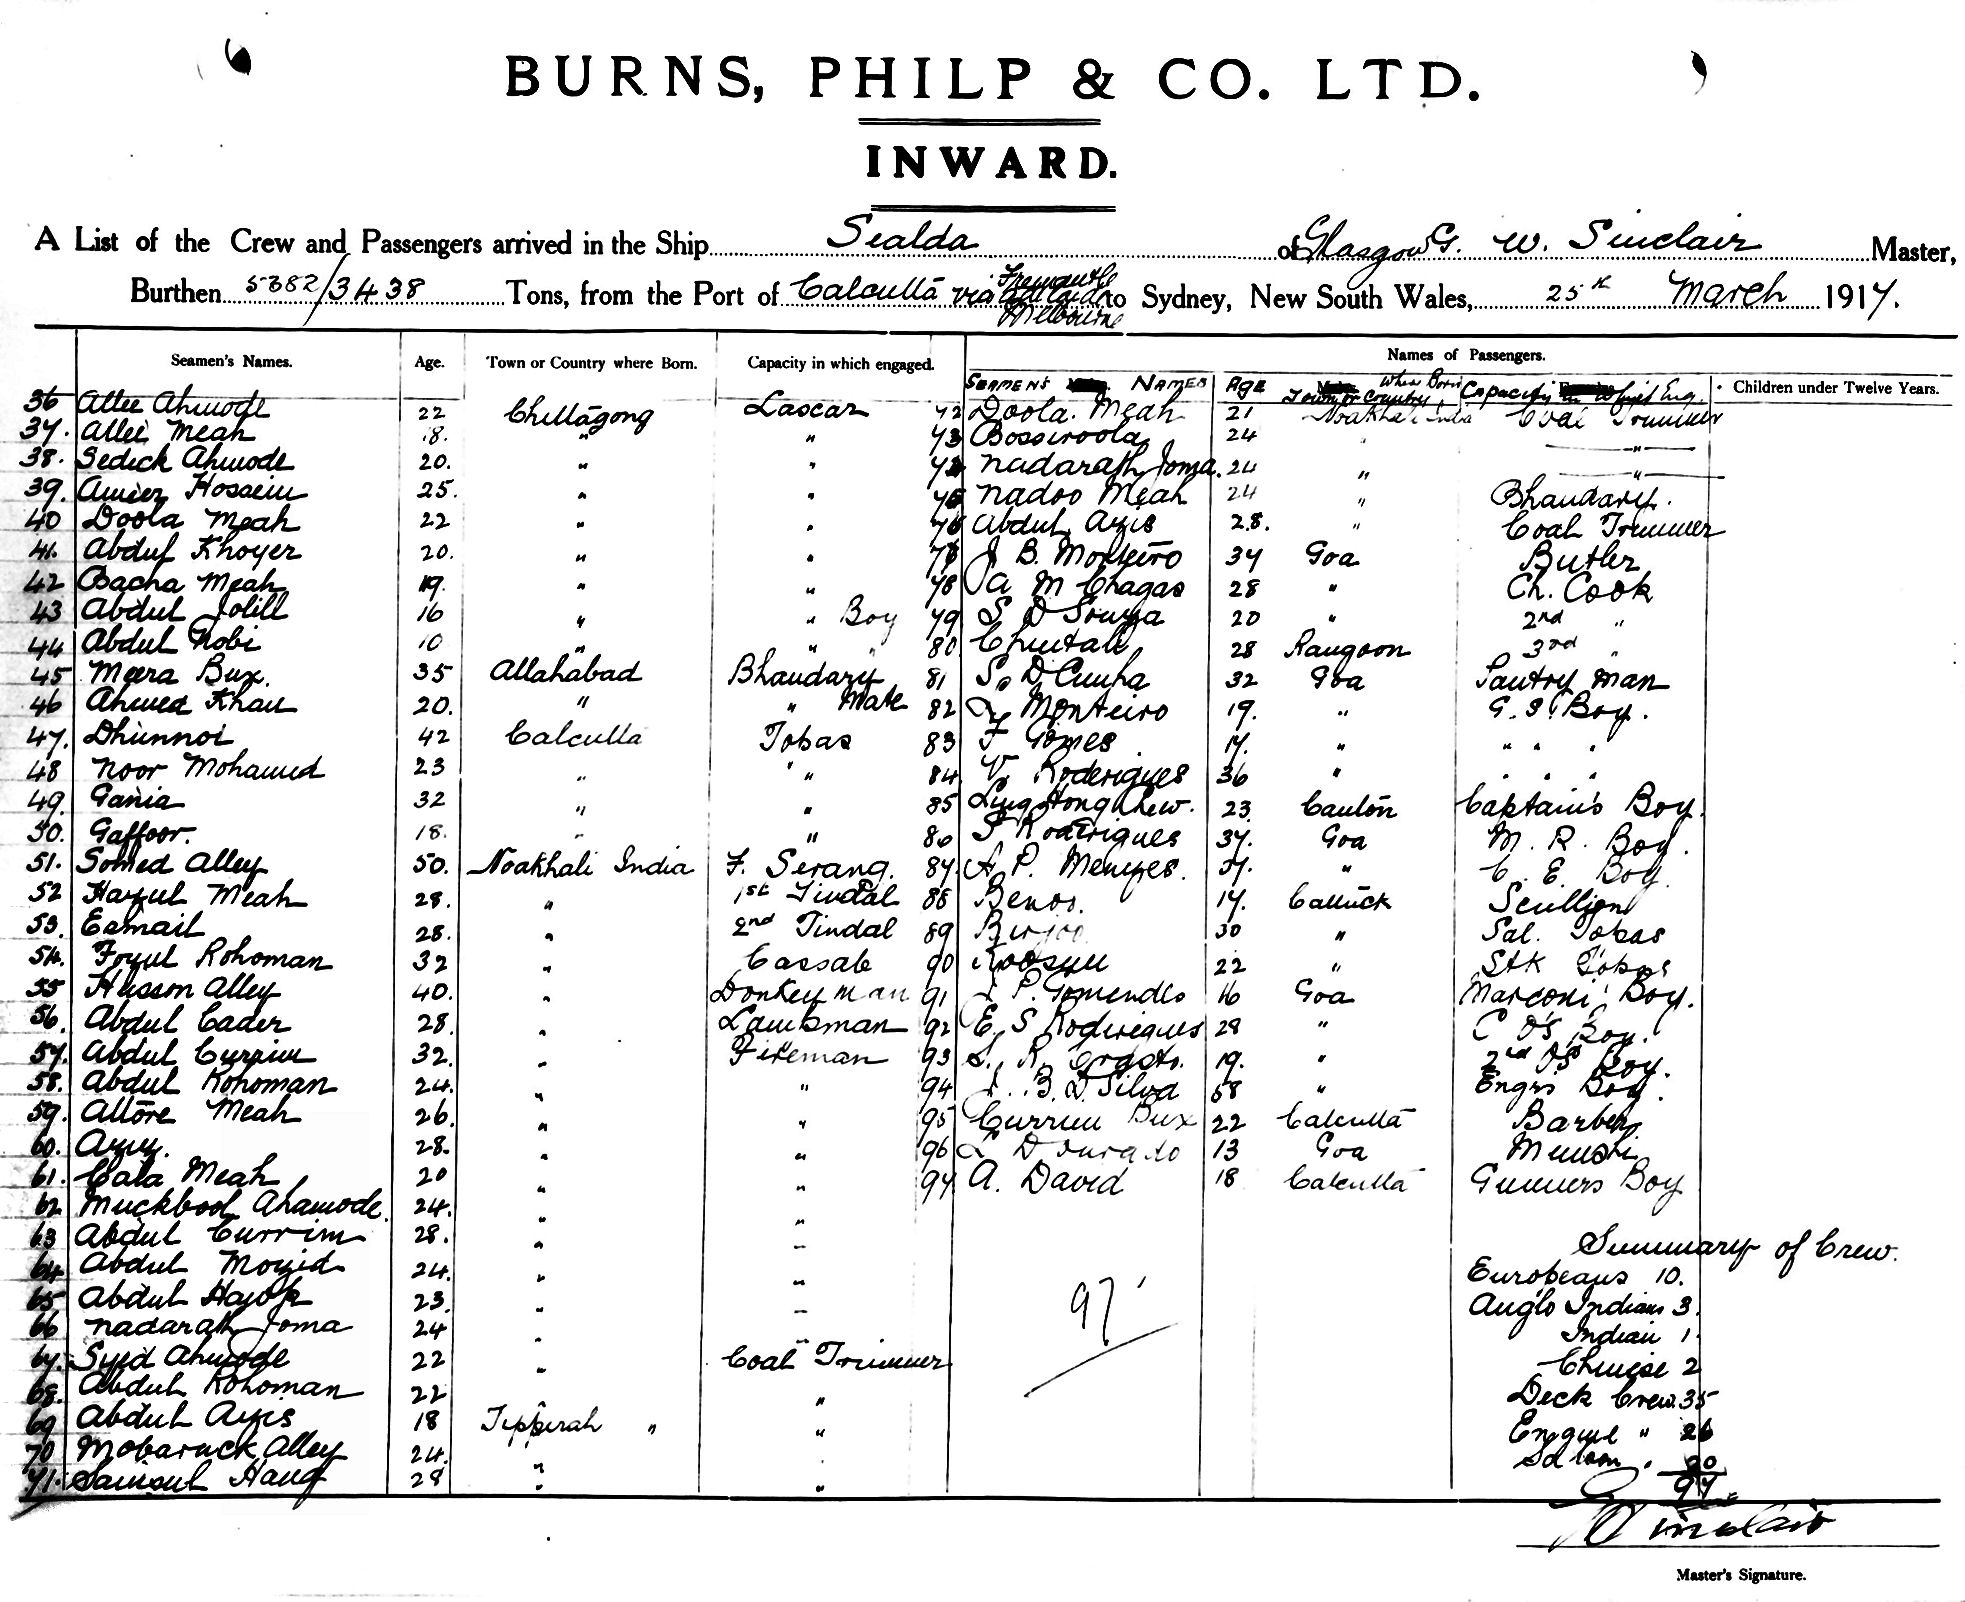 BURNS, PHILP & CO. LTD.
INWARD.
A List of the Crew and Passengers arrived in the Ship Sealda of Glasgow G. W. Sinclair Master,
Burthen 5382/3438 Tons, from the Port of Calcutta via Fremantle Melbourne to Sydney, New South Wales, 25th March 1917.
Seamen's Names. Age. Town or Country where Born. Capacity in which engaged. Names of Passengers.
SEAMEN'S NAMES AGE Town or Country where Born Capacity in which Eng. Children under Twelve Years.
36 Allee Ahmode 22 Chittagong Lascar 72 Doola Meah 21 Noakhali India Coal Trimmer
37. Allee Meah 18. " " 73 Bosseroola 24 " — " —
38. Sedick Ahmode 20. " " 74 Nadarath Joma. 24 " — " —
39. Ameer Hossein 25. " " 75 Nadoo Meah 24 " Bhandary.
40 Doola Meah 22 " " 76 Abdul Azis 28. " Coal Trimmer
41. Abdul Khoyer 20. " " 77 J B. Monteiro 34 Goa Butler
42 Bacha Meah 19. " " 78 A M Chagas 28 " Ch. Cook
43 Abdul Jolill 16 " " Boy 79 S D Souza 20 " 2nd "
44 Abdul Nobi 10 " " " 80 Chintali 28 Rangoon 3rd "
45 Meera Bux. 35 Allahabad Bhandary 81 S. D Cunha 32 Goa Pantry man
46 Ahmed Khan 20. " " Mate 82 L Monteiro 19. " G. S. Boy.
47. Dhunnoi 42 Calcutta Topas 83 F Gomes 17. " " " "
48 Noor Mohamed 23 " " 84 V. Roderigues 36 " " " "
49. Gania 32 " " 85 Ling Hong Chew. 23 Canton Captain's Boy.
50. Gaffoor. 18. " " 86 S Rodrigues 37. Goa M. R. Boy.
51. Somed Alley 50. Noakhali India F. Serang. 87. A. P. Menezes. 37. " C. E. Boy.
52 Hazul Meah 28. " 1st Tindal 88 Benos. 17. Cattuck Scullion
53. Esmail 28. " 2nd Tindal 89 30 " Sal. Topas
54. Fozul Rohoman 32 " Cassab 90 22 " Stk Topas
55 Husson Alley 40. " Donkey man 91 P. Gomendes 16 Goa Marconi Boy.
56. Abdul Cader 28. " Lampsman 92 E. S Rodrigues 28 " C O's Boy.
57. Abdul Currim 32. " Fireman 93 S. R. 19. " 2nd O's Boy.
58. Abdul Rohoman 24. " " 94 B. D. Silva 58 " Engrs Boy.
59. Attore Meah 26. " " 95 Currim Bux 22 Calcutta Barber
60. Azuz. 28. " " 96 L D 13 Goa Munshi
61. Cala Meah 20 " " 97 A. David 18 Calcutta Gunners Boy
62 Muckbool Ahamode. 24. " "
63 Abdul Currim 28. " " Summary of Crew.
64 Abdul Mozid 24. " " Europeans 10.
65 Abdul Hajok 23. " " 97 Anglo Indians 3.
66 Nadarath Joma 24 " " Indian 1.
67. Syed Ahmode 22 " Coal Trimmer Chinese 2
68. Abdul Rohoman 22 " Deck Crew. 35
69 Abdul Azis 18 Tipperah " " Engine " 26
70 Mobaruck Alley 24. " Saloon " 20
71. Samsul Hauq 28 " " 97
G W Sinclair
Master's Signature.